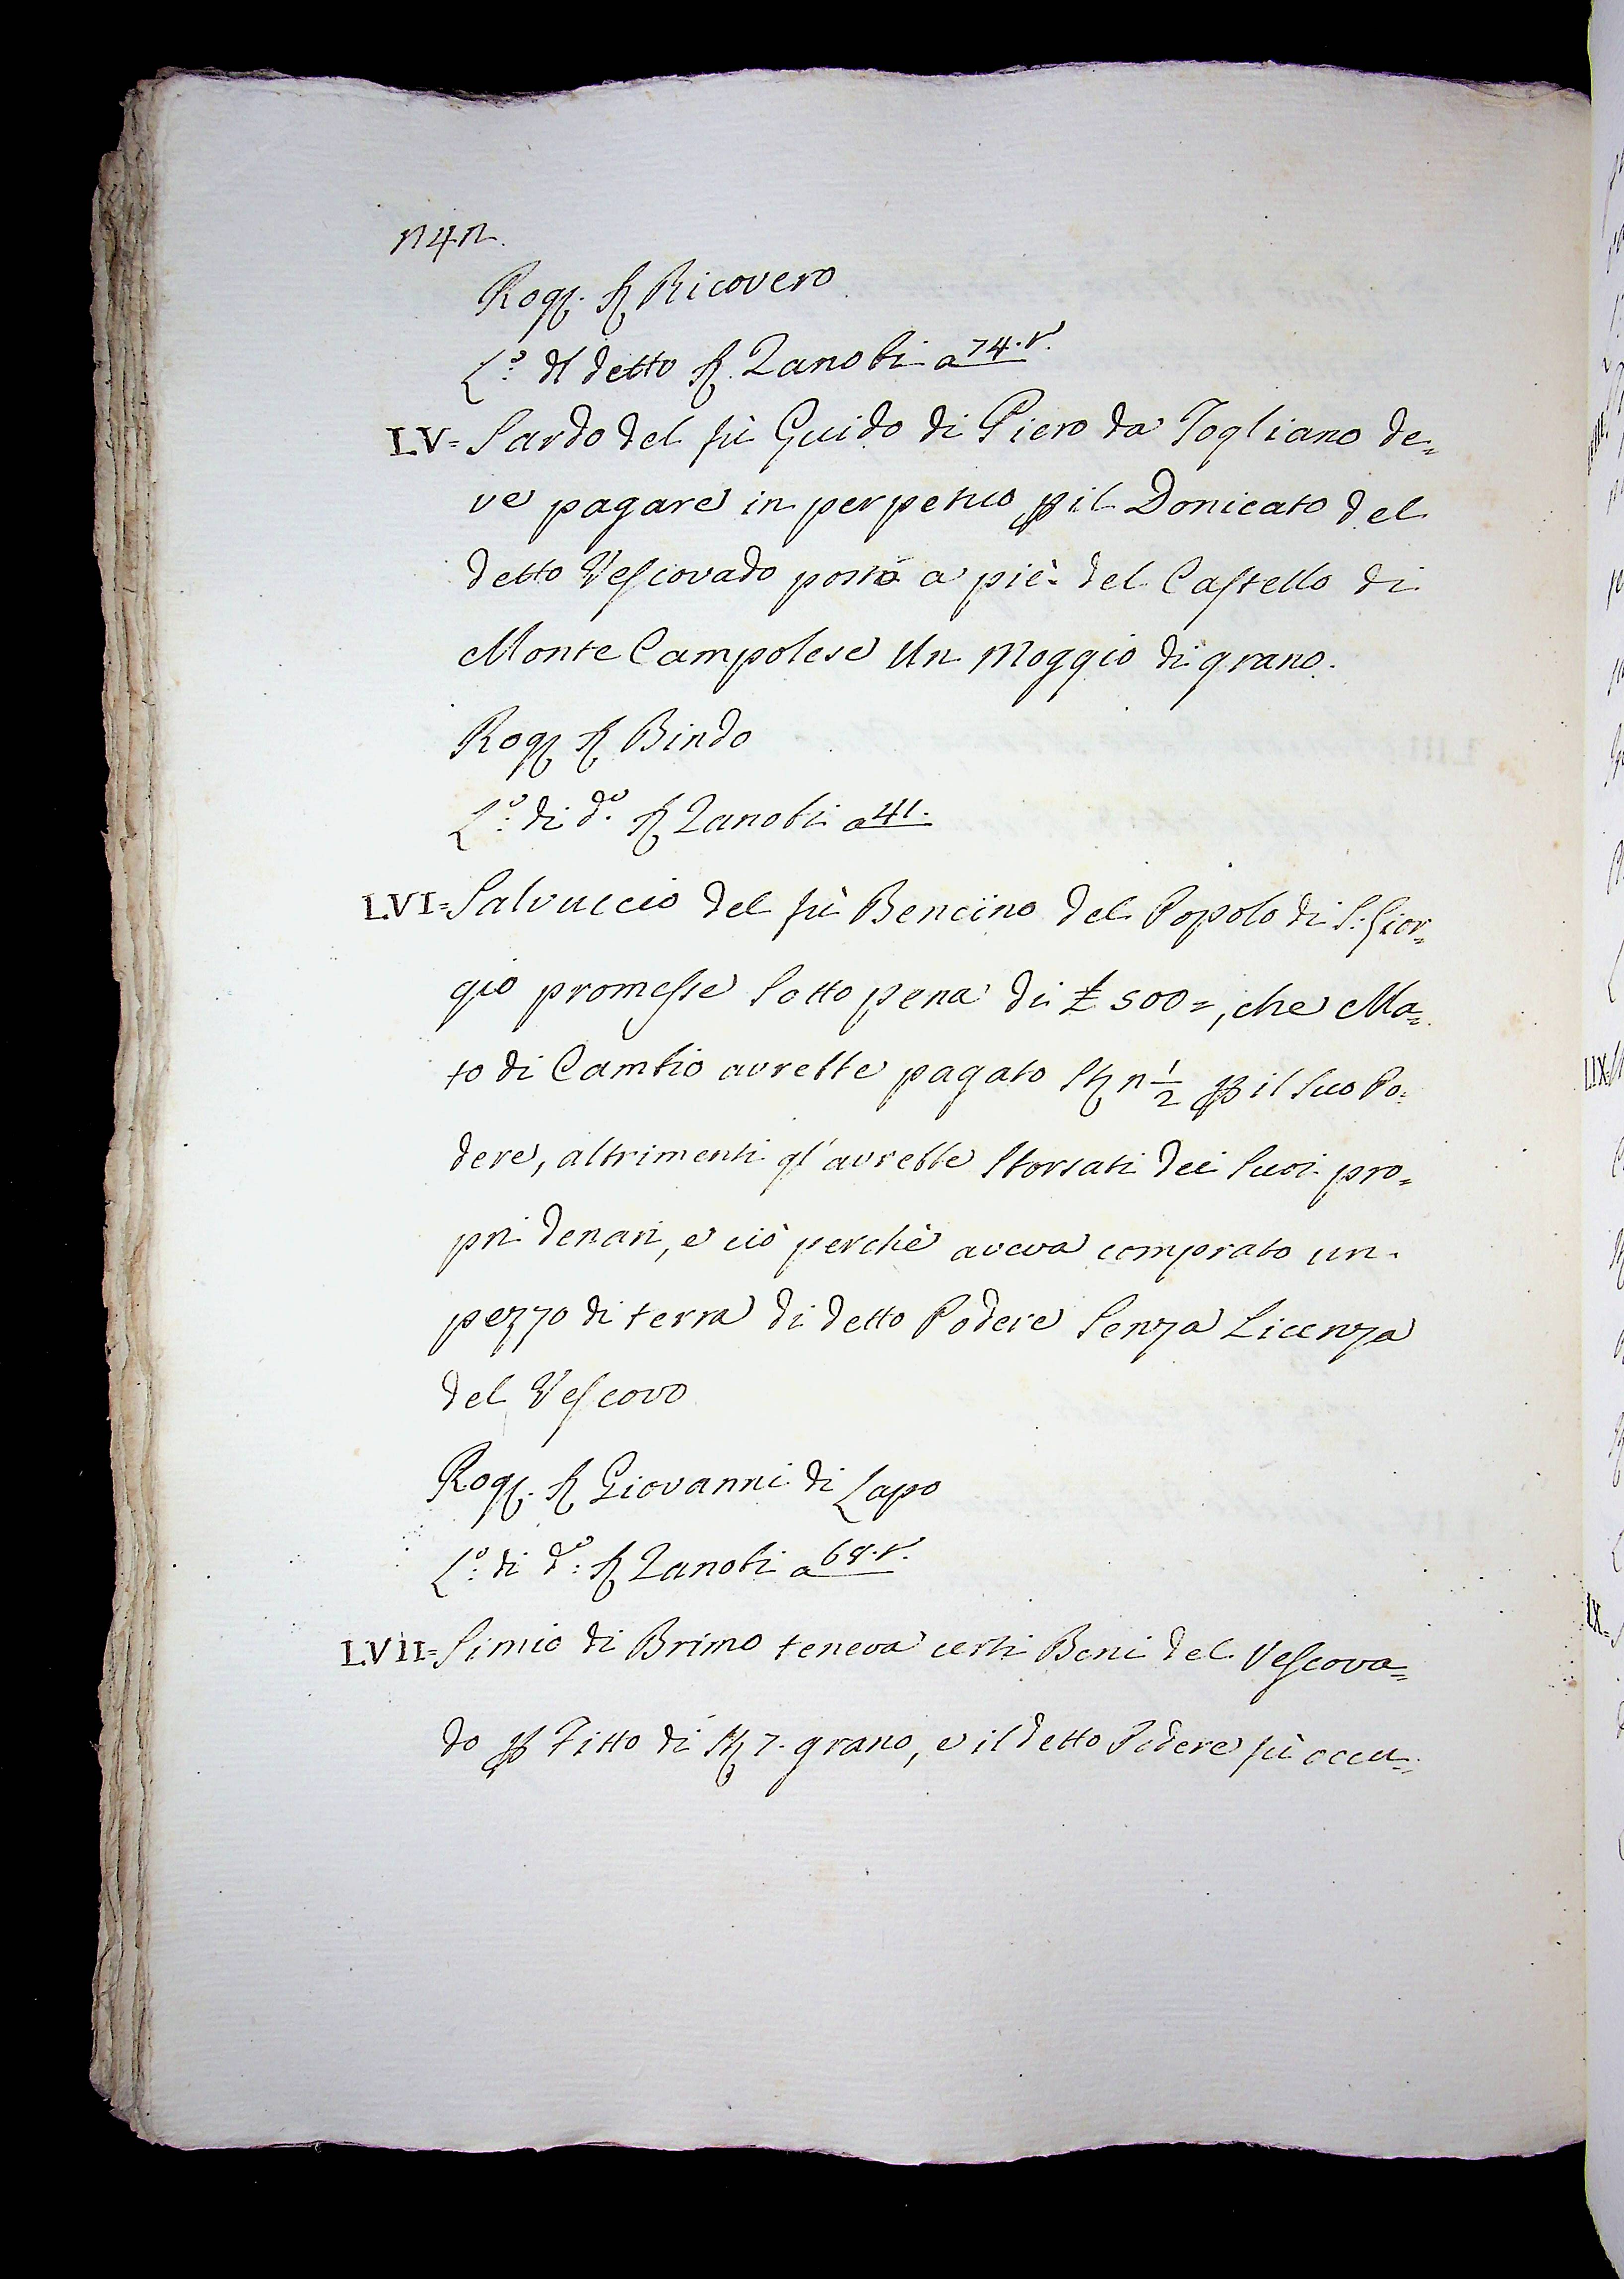 n4n.
Rog. S. Ricovero
L.o dl detto S. Zanobi a 74. r.
LV= Sardo del fù Guido di Piero da Fogliano de=
ve pagare in perpetuo p il Donicato del
detto Vescovado posto a piè del Castello di
Monte Campolese Un Moggio di grano.
Rog S Bindo
L.o di d.o S Zanobi a 41.
LVI= Salvuccio del fù Bencino del Popolo di S. Gior=
gio promesse Sotto pena di £ 500=, che Ma=
to di Cambio avrebbe pagato St n 1/2 p il Suo Po=
dere, altrimenti gl'avrebbe Sborsati dei Suoi pro=
pri denari, e ciò perchè aveva comprato un
pezzo di terra di detto Podere Senza Licenza
del Vescovo
Rog. S Giovanni di Lapo
L.o di d.o S Zanobi a 68. r.
LVII= Simio di Brimo teneva certi Beni del Vescova=
do p Fitto di St 7. grano, e il detto Podere fù occu=